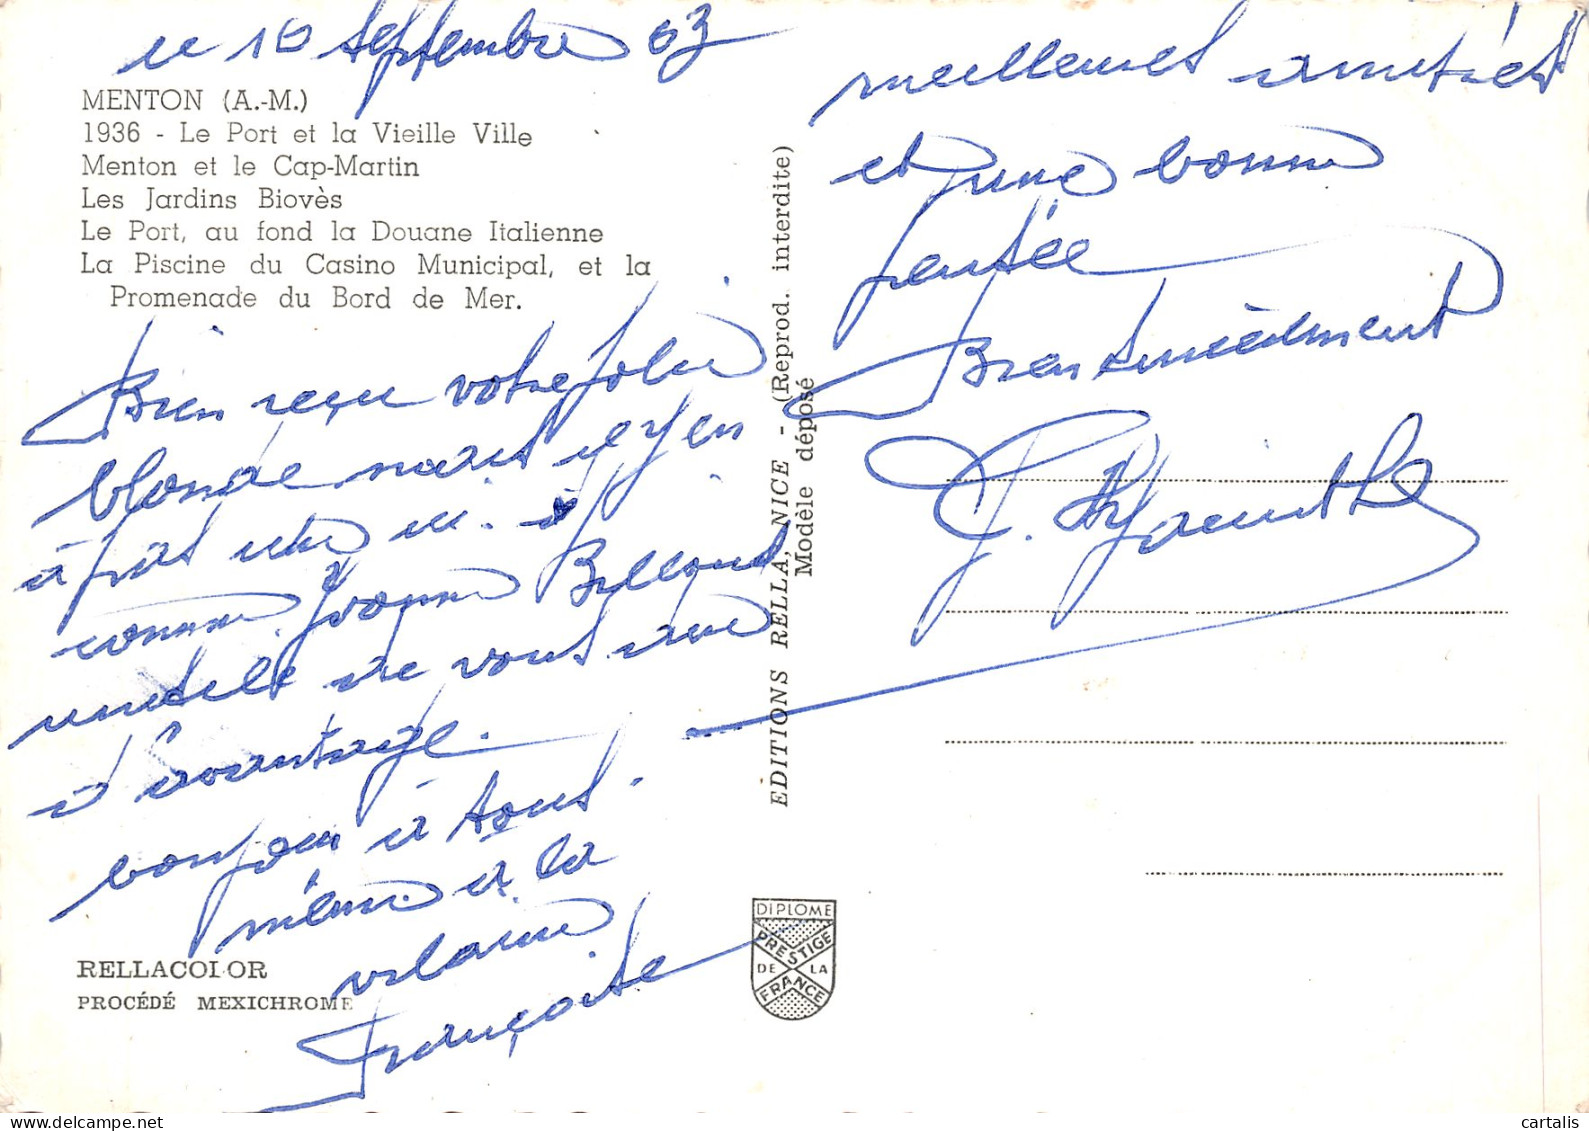 le 10 septembre 63
MENTON (A.-M.)
1936 - Le Port et la Vieille Ville
Menton et le Cap-Martin
Les Jardins Biovès
Le Port, au fond la Douane Italienne
La Piscine du Casino Municipal, et la
Promenade du Bord de Mer.
Bien reçu votre jolie
blonde mais il y en
a pas une ici à
comme Yvonne
inutile de vous dire
d'avantage.
bonjour à tous.
même à la
vilaine
Françoise
RELLACOLOR
PROCÉDÉ MEXICHROME
EDITIONS RELLA, NICE - (Reprod. interdite)
Modèle déposé
DIPLOME
PRESTIGE
DE LA
FRANCE
meilleures amitiés
et une bonne
pensée
Bien amicalement
J. Hyacinthe
cartalis